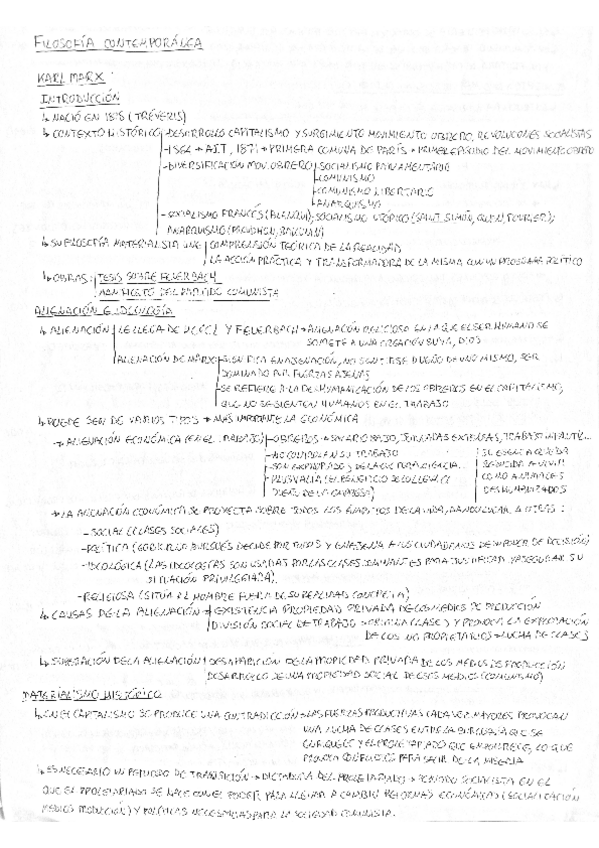 FILOSOFÍA CONTEMPORÁNEA
KARL MARX
INTRODUCCIÓN
↳ NACIÓ EN 1818 (TRÉVERIS)
↳ CONTEXTO HISTÓRICO - DESARROLLO CAPITALISMO Y SURGIMIENTO MOVIMIENTO OBRERO, REVOLUCIONES SOCIALISTAS
- 1864 → A.I.T, 1871 → PRIMERA COMUNA DE PARÍS → PRIMER EPISODIO DEL MOVIMIENTO OBRERO
- DIVERSIFICACIÓN MOV. OBRERO - SOCIALISMO PARLAMENTARIO
- COMUNISMO
- COMUNISMO LIBERTARIO
- ANARQUISMO
- SOCIALISMO FRANCÉS (BLANQUI); SOCIALISMO UTÓPICO (SAINT SIMON, OWEN, FOURIER);
ANARQUISMO (PROUDHON, BAKUNIN)
↳ SU FILOSOFÍA MATERIALISTA UNE COMPRENSIÓN TEÓRICA DE LA REALIDAD
LA ACCIÓN PRÁCTICA Y TRANSFORMADORA DE LA MISMA CON UN PROGRAMA POLÍTICO
↳ OBRAS: TESIS SOBRE FEUERBACH
MANIFIESTO DEL PARTIDO COMUNISTA
ALIENACIÓN E IDEOLOGÍA
↳ ALIENACIÓN LE LLEGA DE HEGEL Y FEUERBACH → ALIENACIÓN RELIGIOSO EN LA QUE EL SER HUMANO SE
SOMETE A UNA CREACIÓN SUYA, DIOS
ALIENACIÓN DE MARX SIGNIFICA ENAJENACIÓN, NO SENTIRSE DUEÑO DE UNO MISMO, SER
DOMINADO POR FUERZAS AJENAS
SE REFIERE A LA DESHUMANIZACIÓN DE LOS OBREROS EN EL CAPITALISMO,
QUE NO SE SIENTEN HUMANOS EN EL TRABAJO
↳ PUEDE SER DE VARIOS TIPOS → MÁS IMPORTANTE LA ECONÓMICA
→ ALIENACIÓN ECONÓMICA (EN EL TRABAJO) - OBREROS → SALARIO BAJO, JORNADAS EXTENSAS, TRABAJO INFANTIL...
- NO CONTROLAN SU TRABAJO
- SON EXPROPIADOS DE LO QUE
- PLUSVALÍA (EL BENEFICIO SE LO LLEVA EL
DUEÑO DE LA EMPRESA)
COMO ANIMALES
DESHUMANIZADOS
→ LA ALIENACIÓN ECONÓMICA SE PROYECTA SOBRE TODOS LOS ÁMBITOS DE LA VIDA, DANDO LUGAR A OTRAS:
- SOCIAL (CLASES SOCIALES)
- POLÍTICA (GOBIERNO BURGUÉS DECIDE POR TODOS Y ENAJENA A LOS CIUDADANOS DE SU PODER DE DECISIÓN)
- IDEOLÓGICA (LAS IDEOLOGÍAS SON USADAS POR LAS CLASES DOMINANTES PARA JUSTIFICAR Y ASEGURAR SU
SITUACIÓN PRIVILEGIADA)
- RELIGIOSA (SITÚA AL HOMBRE FUERA DE SU REALIDAD CONCRETA)
↳ CAUSAS DE LA ALIENACIÓN EXISTENCIA PROPIEDAD PRIVADA DE LOS MEDIOS DE PRODUCCIÓN
DIVISIÓN SOCIAL DE TRABAJO → ORIGINA CLASES Y PROVOCA LA EXPLOTACIÓN
DE LOS NO PROPIETARIOS → LUCHA DE CLASES
↳ SUPERACIÓN DE LA ALIENACIÓN DESAPARICIÓN DE LA PROPIEDAD PRIVADA DE LOS MEDIOS DE PRODUCCIÓN
DESARROLLO DE UNA PROPIEDAD SOCIAL DE ESOS MEDIOS (COMUNISMO)
MATERIALISMO HISTÓRICO
↳ EN EL CAPITALISMO SE PRODUCE UNA CONTRADICCIÓN → LAS FUERZAS PRODUCTIVAS CADA VEZ MAYORES PROVOCAN
UNA LUCHA DE CLASES ENTRE LA BURGUESÍA QUE SE
ENRIQUECE Y EL PROLETARIADO QUE EMPOBRECE, LO QUE
PARA SALIR DE LA MISERIA
↳ ES NECESARIO UN PERIODO DE TRANSICIÓN → DICTADURA DEL PROLETARIADO → PERIODO SOCIALISTA EN EL
QUE EL PROLETARIADO SE HACE CON EL PODER PARA LLEVAR A CAMBIO REFORMAS ECONÓMICAS (SOCIALIZACIÓN
MEDIOS PRODUCCIÓN) Y POLÍTICAS NECESARIAS PARA LA SOCIEDAD COMUNISTA.